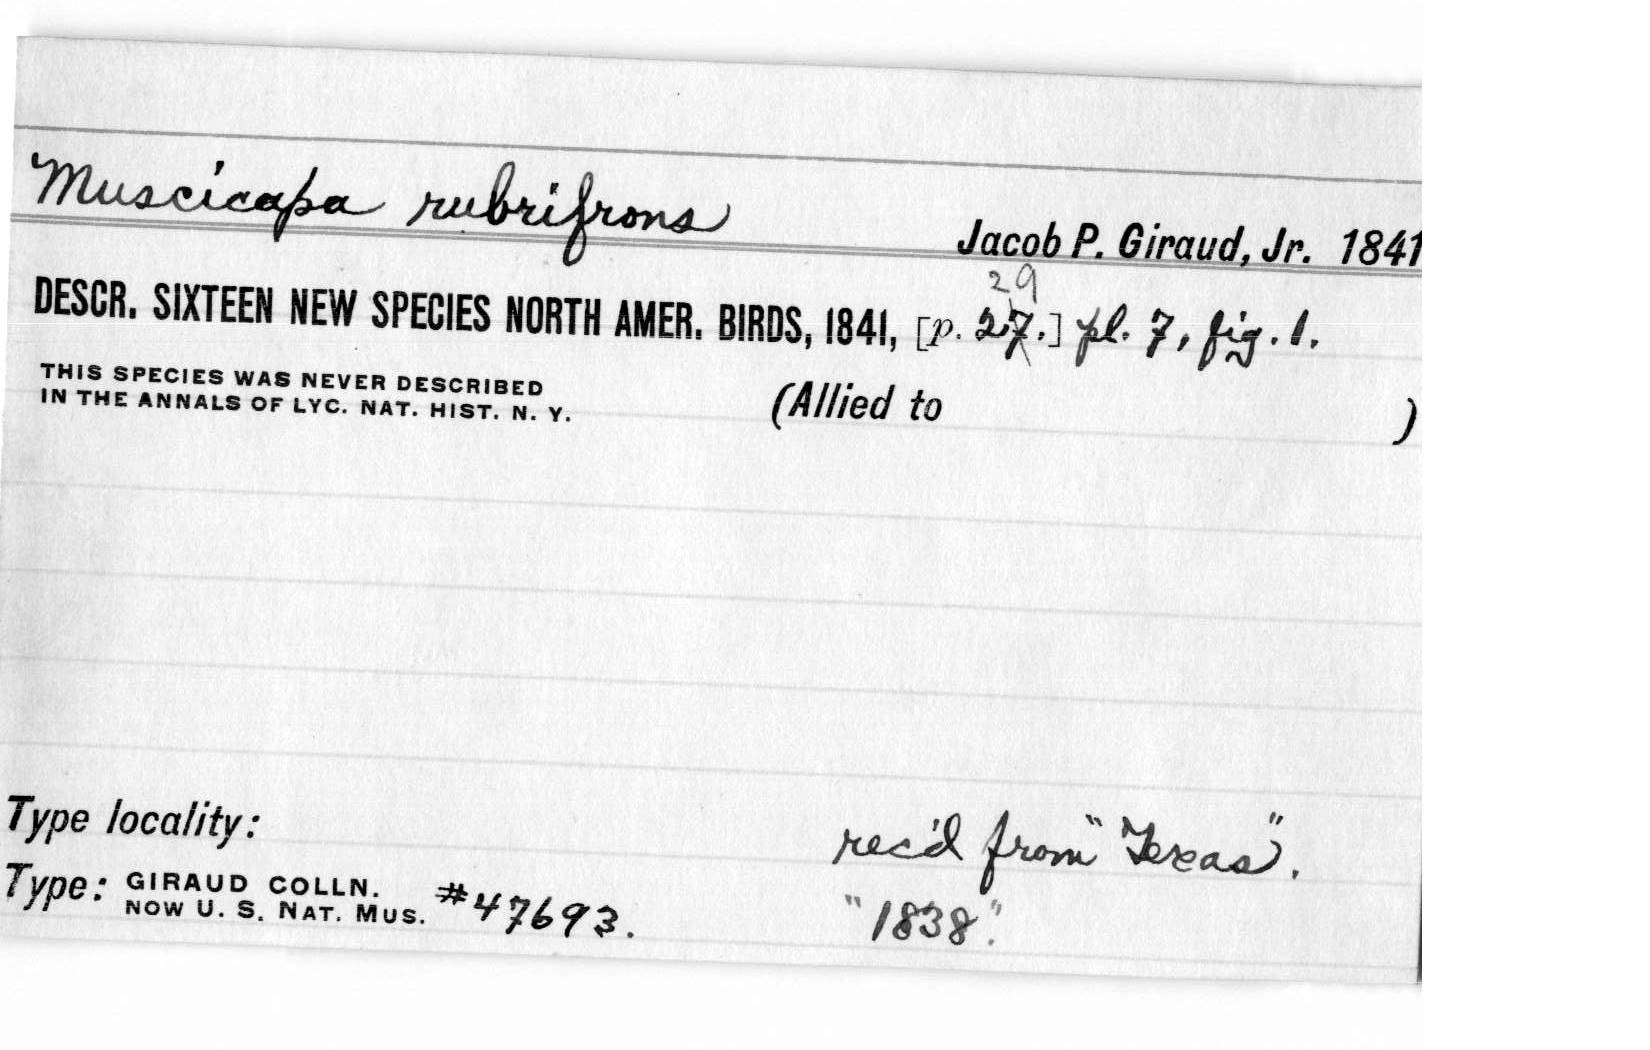 Muscicapa rubrifrons
Jacob P. Giraud, Jr. 1841
29
DESCR. SIXTEEN NEW SPECIES NORTH AMER. BIRDS, 1841, [p. 27.] pl. 7, fig. 1.
THIS SPECIES WAS NEVER DESCRIBED
IN THE ANNALS OF LYC. NAT. HIST. N. Y.
(Allied to )
Type locality:
rec'd from "Texas".
Type: GIRAUD COLLN.
NOW U. S. NAT. MUS. #47693.
"1838".